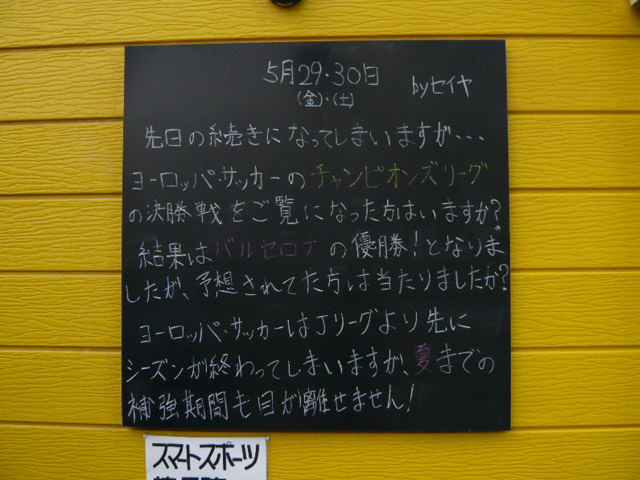 5月29・30日 byセイヤ
(金)・(土)
先日の続きになってしまいますが・・・
ヨーロッパ・サッカーのチャンピオンズリーグ
の決勝戦をご覧になった方はいますか?
結果はバルセロナの優勝!となりま
したが、予想されてた方は当たりましたか?
ヨーロッパ・サッカーはJリーグより先に
シーズンが終わってしまいますが、夏までの
補強期間も目が離せません!
スマートスポーツ